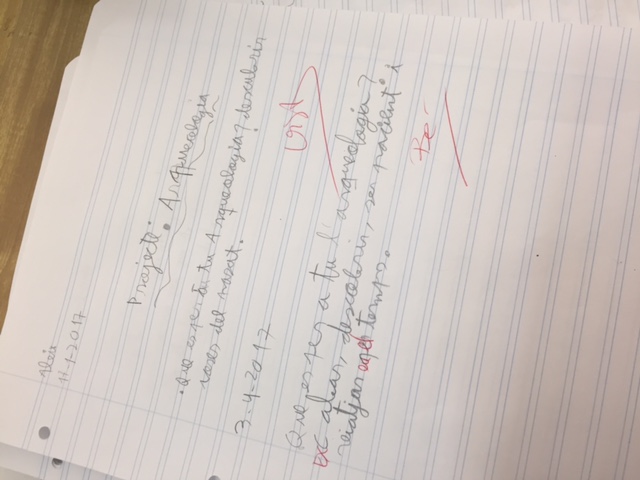 Aleix
11-1-2017
Projecte: Arqueologia
• Que es per a tu Arqueologia? descubrir
coses del pasat.
Vist
3-4-2017
Que es per a tu l'arqueologia?
EXcabar, descobrir, ser pacient i
viatjar en el tempo.
Bé-